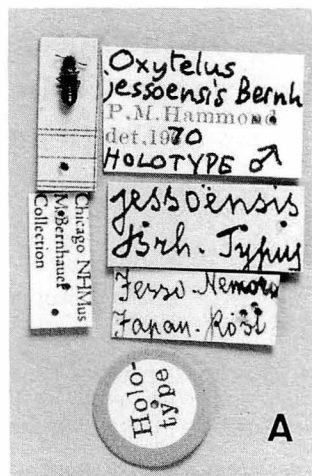 Oxytelus
jessoensis Bernh
P.M. Hammond
det. 1970
HOLOTYPE ♂
jessoënsis
Brh. Typus
Jesso. Nemoro
Japan. Röst
Chicago NHMus
M.Bernhauer
Collection
Holo-
type
A